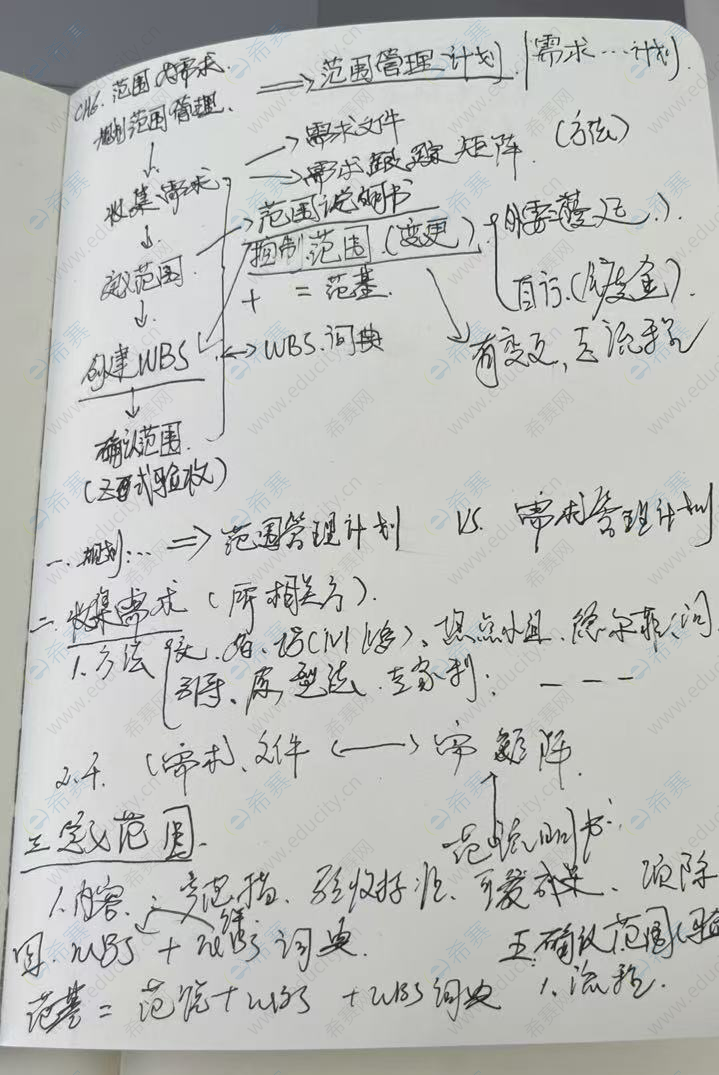 CH6. 范围内需求.
规划范围管理. ⟹ 范围管理计划 / 需求…计划.
↓ → 需求文件
收集需求 → 需求跟踪矩阵. (方法)
↓ → 范围说明书
定义范围 控制范围 (变更)
↓ + = 范基. 自行.(镀金).
创建WBS ↔ WBS.词典 有变更,去流程
↓
确认范围.
(正式验收)
一. 规划:… ⟹ 范围管理计划 VS. 需求管理计划
二. 收集需求 (所 相关方).
1.方法 焦点小组. 德尔菲.问.
引导、原型法. — — —
(需求)、文件 ⟷ 需 矩阵.
三 定义范围. 范说明书.
1.内容. 验收标准、可 成果、项除
四. WBS + WBS 词典. 五.确认范围(验
范基 = 范说 + WBS + WBS词典 1.流程.